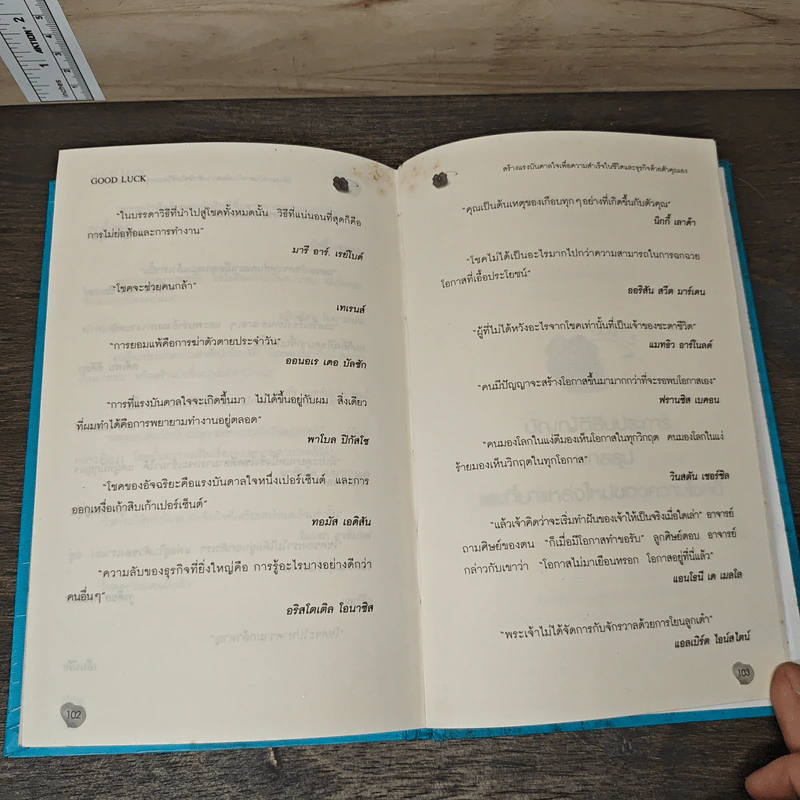 GOOD LUCK
"ในบรรดาวิธีที่นำไปสู่โชคทั้งหมดนั้น วิธีที่แน่นอนที่สุดก็คือ
การไม่ย่อท้อและการทำงาน"
มารี อาร์. เรย์โบด์
"โชคจะช่วยคนกล้า"
เทเรนส์
"การยอมแพ้คือการฆ่าตัวตายประจำวัน"
ออนอเร เดอ บัลซัก
"การที่แรงบันดาลใจจะเกิดขึ้นมา ไม่ได้ขึ้นอยู่กับผม สิ่งเดียว
ที่ผมทำได้คือการพยายามทำงานอยู่ตลอด"
พาโบล ปิกัสโซ
"โชคของอัจฉริยะคือแรงบันดาลใจหนึ่งเปอร์เซ็นต์ และการ
ออกเหงื่อเก้าสิบเก้าเปอร์เซ็นต์"
ทอมัส เอดิสัน
"ความลับของธุรกิจที่ยิ่งใหญ่คือ การรู้อะไรบางอย่างดีกว่า
คนอื่นๆ"
อริสโตเติล โอนาซิส
102
สร้างแรงบันดาลใจเพื่อความสำเร็จในชีวิตและธุรกิจด้วยตัวคุณเอง
"คุณเป็นต้นเหตุของเกือบทุกๆอย่างที่เกิดขึ้นกับตัวคุณ"
นิกกี้ เลาด้า
"โชคไม่ได้เป็นอะไรมากไปกว่าความสามารถในการฉกฉวย
โอกาสที่เอื้อประโยชน์"
ออริสัน สวีต มาร์เดน
"ผู้ที่ไม่ได้หวังอะไรจากโชคเท่านั้นที่เป็นเจ้าของชะตาชีวิต"
แมทธิว อาร์โนลด์
"คนมีปัญญาจะสร้างโอกาสขึ้นมามากกว่าที่จะรอพบโอกาสเอง"
ฟรานซิส เบคอน
"คนมองโลกในแง่ดีมองเห็นโอกาสในทุกวิกฤต คนมองโลกในแง่
ร้ายมองเห็นวิกฤตในทุกโอกาส"
วินสตัน เชอร์ชิล
"แล้วเจ้าคิดว่าจะเริ่มทำฝันของเจ้าให้เป็นจริงเมื่อใดเล่า" อาจารย์
ถามศิษย์ของตน "ก็เมื่อมีโอกาสทำขอรับ" ลูกศิษย์ตอบ อาจารย์
กล่าวกับเขาว่า "โอกาสไม่มาเยือนหรอก โอกาสอยู่ที่นี่แล้ว"
แอนโธนี เด เมลโล
"พระเจ้าไม่ได้จัดการกับจักรวาลด้วยการโยนลูกเต๋า"
แอลเบิร์ต ไอน์สไตน์
103